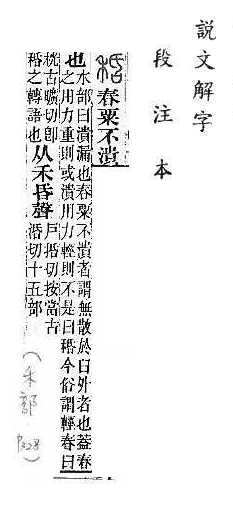 說文解字
段注本
秳 舂粟不潰
也
水部曰潰漏也舂粟不潰者謂無散於臼外者也葢舂
之用力重則或潰用力輕則不是曰秳今俗謂輕舂曰
桄古曠切卽
秳之轉語也
从禾昏聲
戶括切按當古
活切十五部
(禾部 P328)